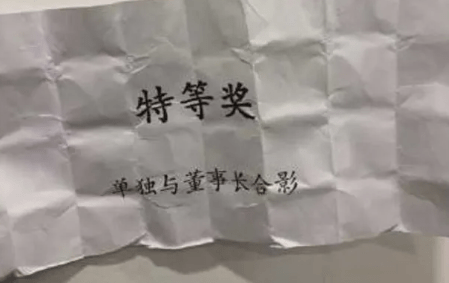 特等奖
单独与董事长合影